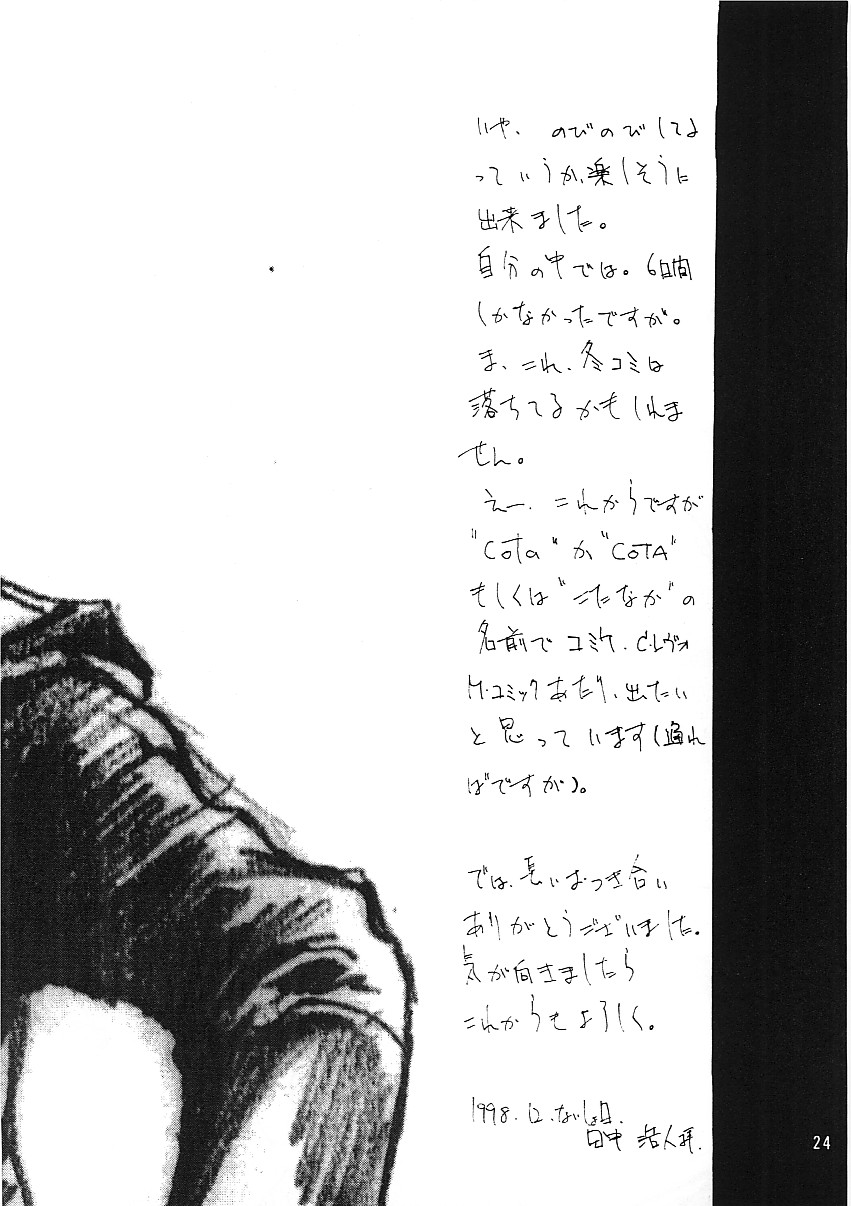 いや、のびのびしてよ
っていうか、楽しそうに
出来ました。
自分の中では。6日間
しかなかったですが。
ま、これ、冬コミは
落ちてるかもしれま
せん。
えー、これからですが
"Cota"か"COTA"
もしくは"こたなか"の
名前でコミケ、C・レヴォ
M・コミックあたり、出たい
と思っています(通れ
ばですが)。
では、長いおつき合い
ありがとうございました。
気が向きましたら
これからもよろしく。
1998.12.
24